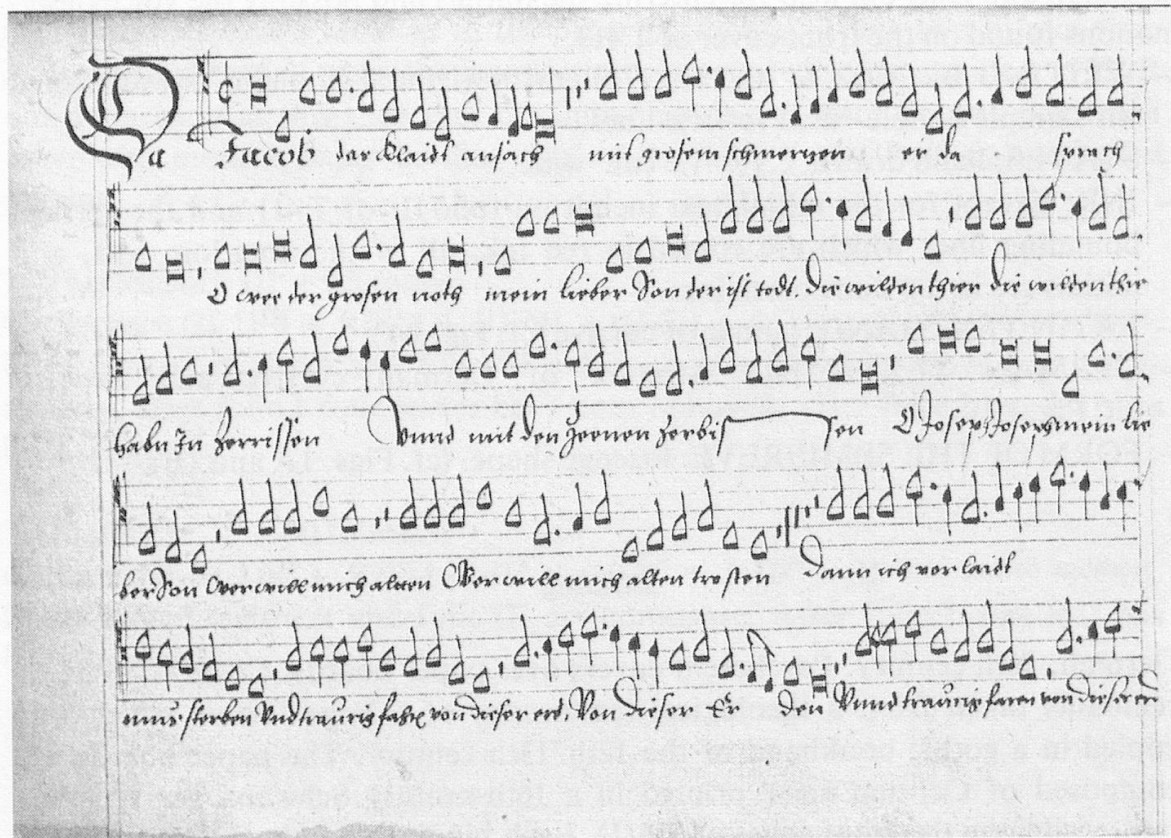 Da Jacob der Klaidt ansach mit grosem schmerzen er da sprach
O wee der grosen noth mein lieber Son der ist todt. die wilden thier die wilden thie
habn In zerrissen Vnnd mit den Zeenen zerbis sen O Joseph Joseph mein lie
ber Son Wer will mich altten Wer will mich alten trosten Dann ich vor laidt
mus sterben Vnd traurig fahrn von dieser erd, Von dieser Er den Vnnd traurig faren von dieser erd